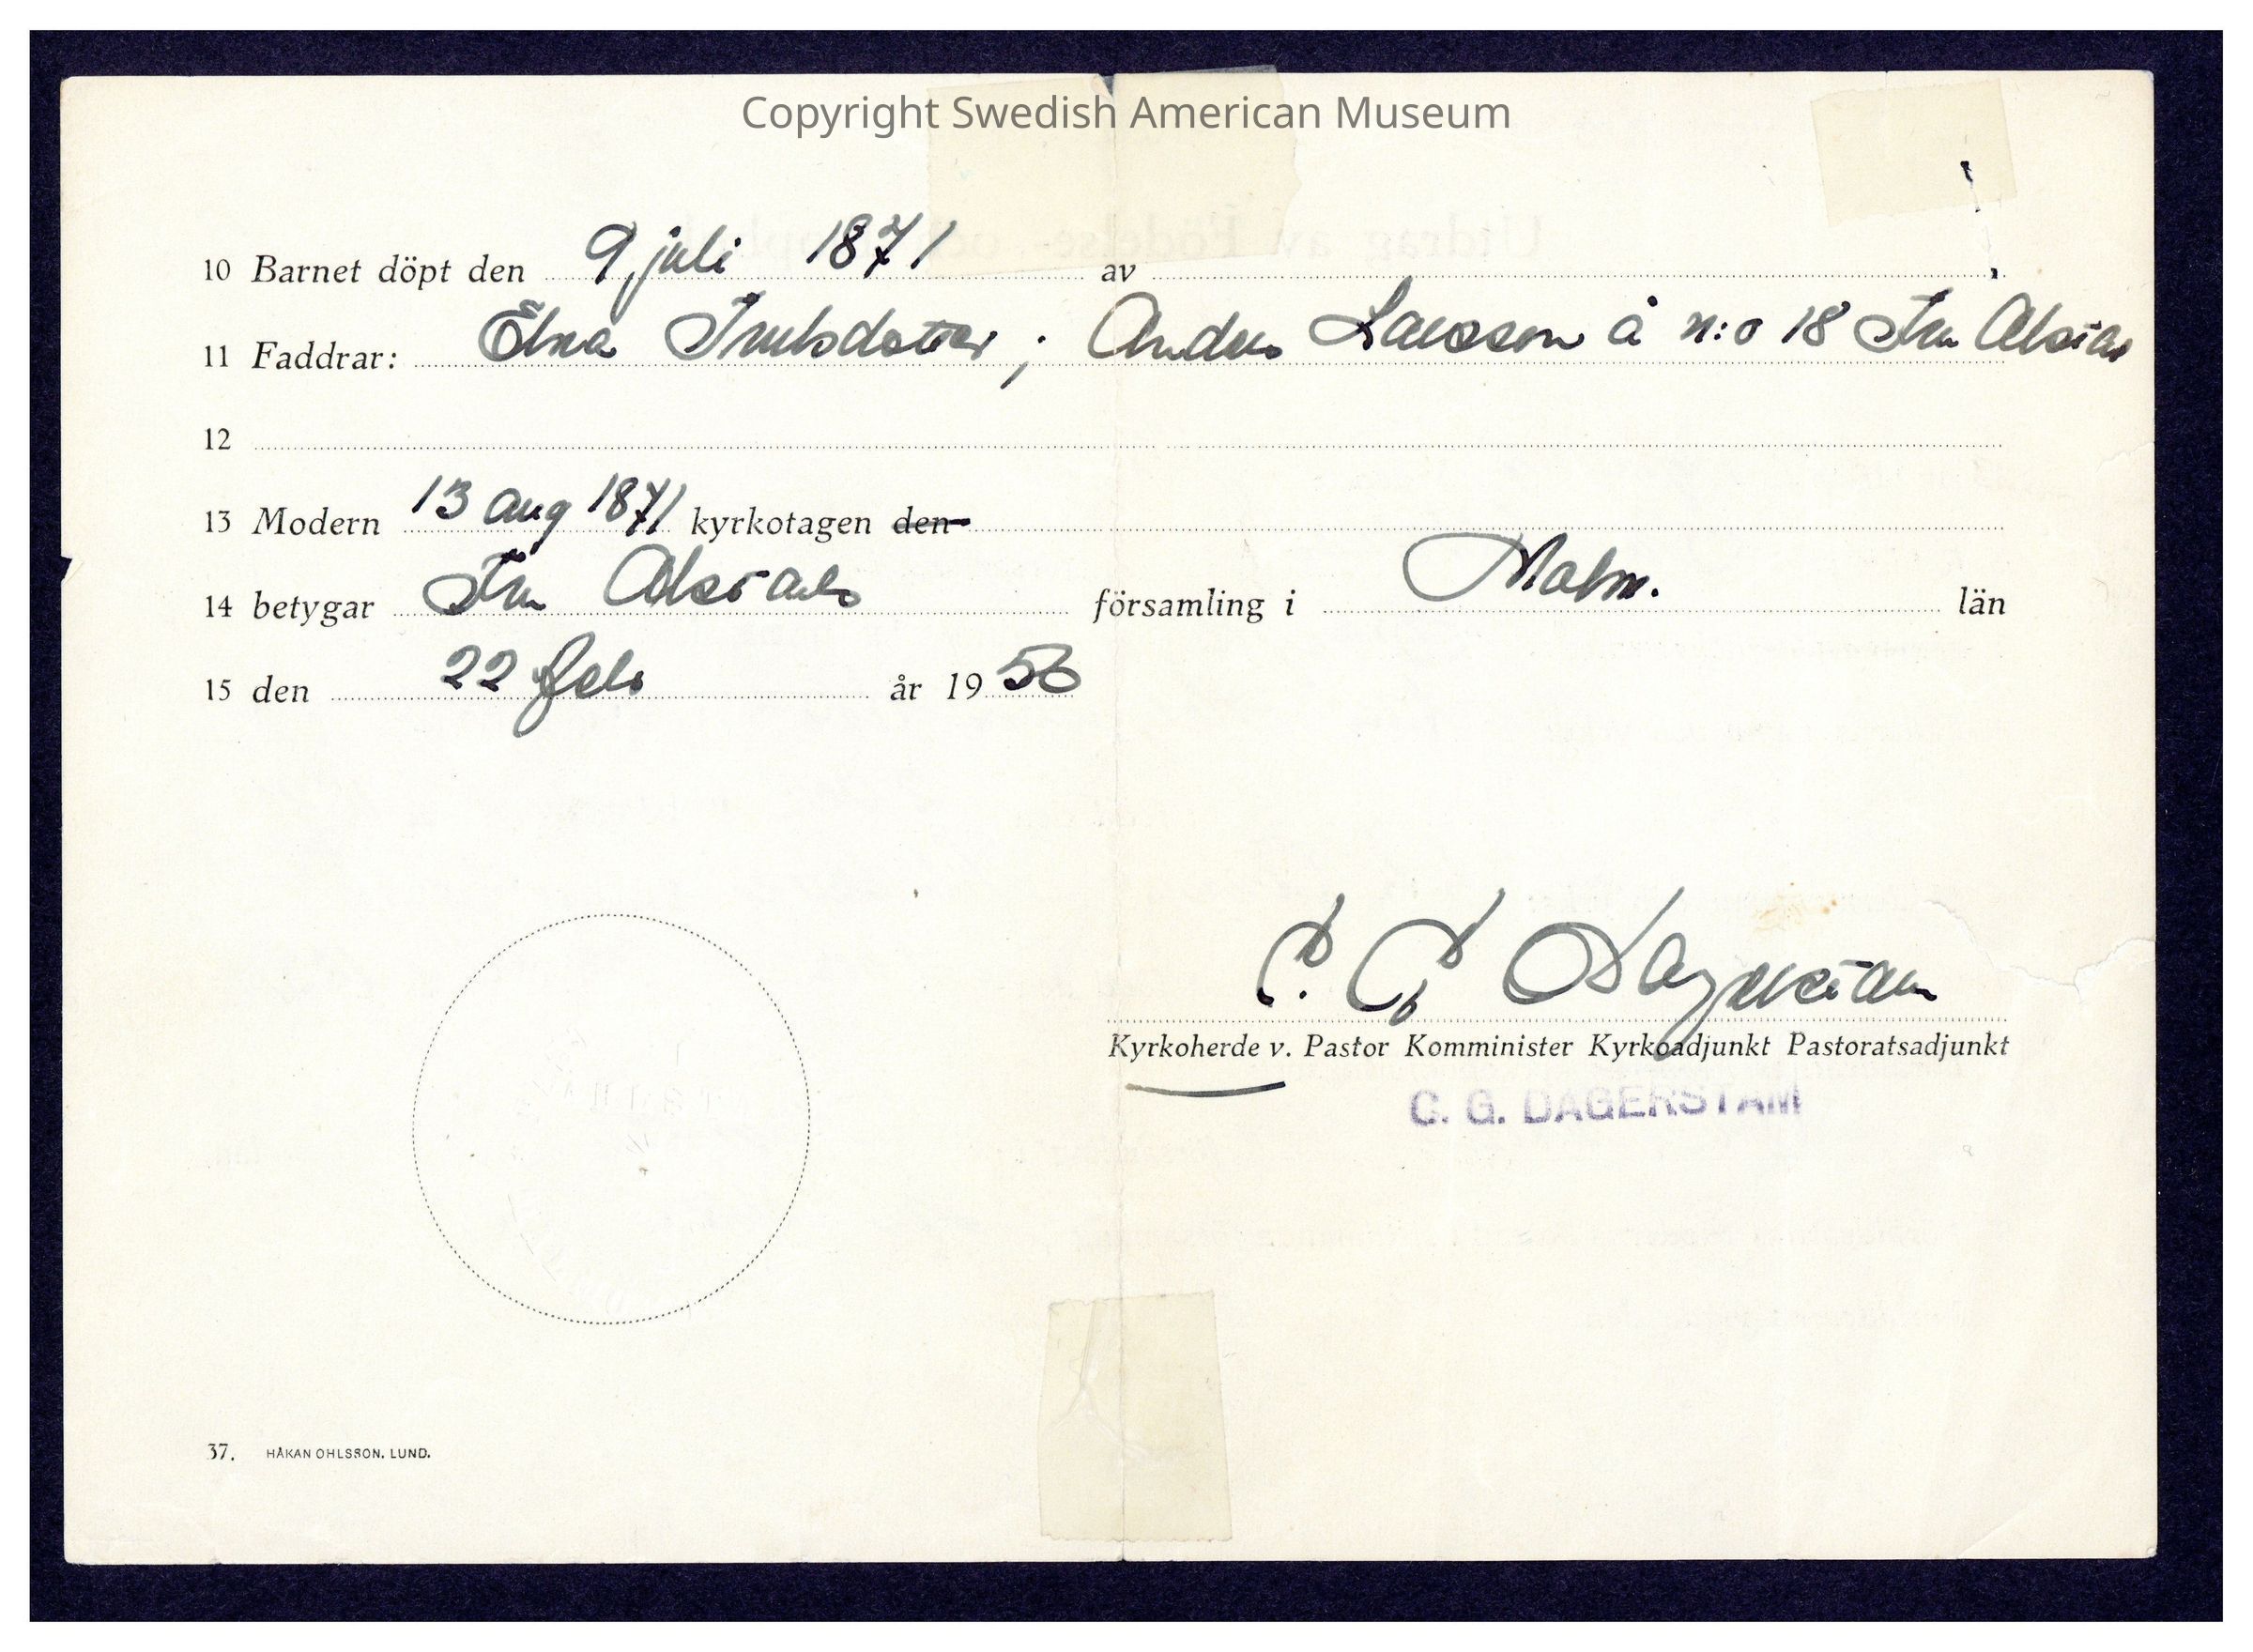 Copyright Swedish American Museum
10 Barnet döpt den 9 juli 1871 av
11 Faddrar: Elna ; Anders Larsson å n:o 18
12
13 Modern 13 aug 1871 kyrkotagen den
14 betygar församling i Malm. län
15 den 22 feb år 1956
Kyrkoherde v. Pastor Komminister Kyrkoadjunkt Pastoratsadjunkt
C. G. DAGERSTAM
37. HÅKAN OHLSSON, LUND.